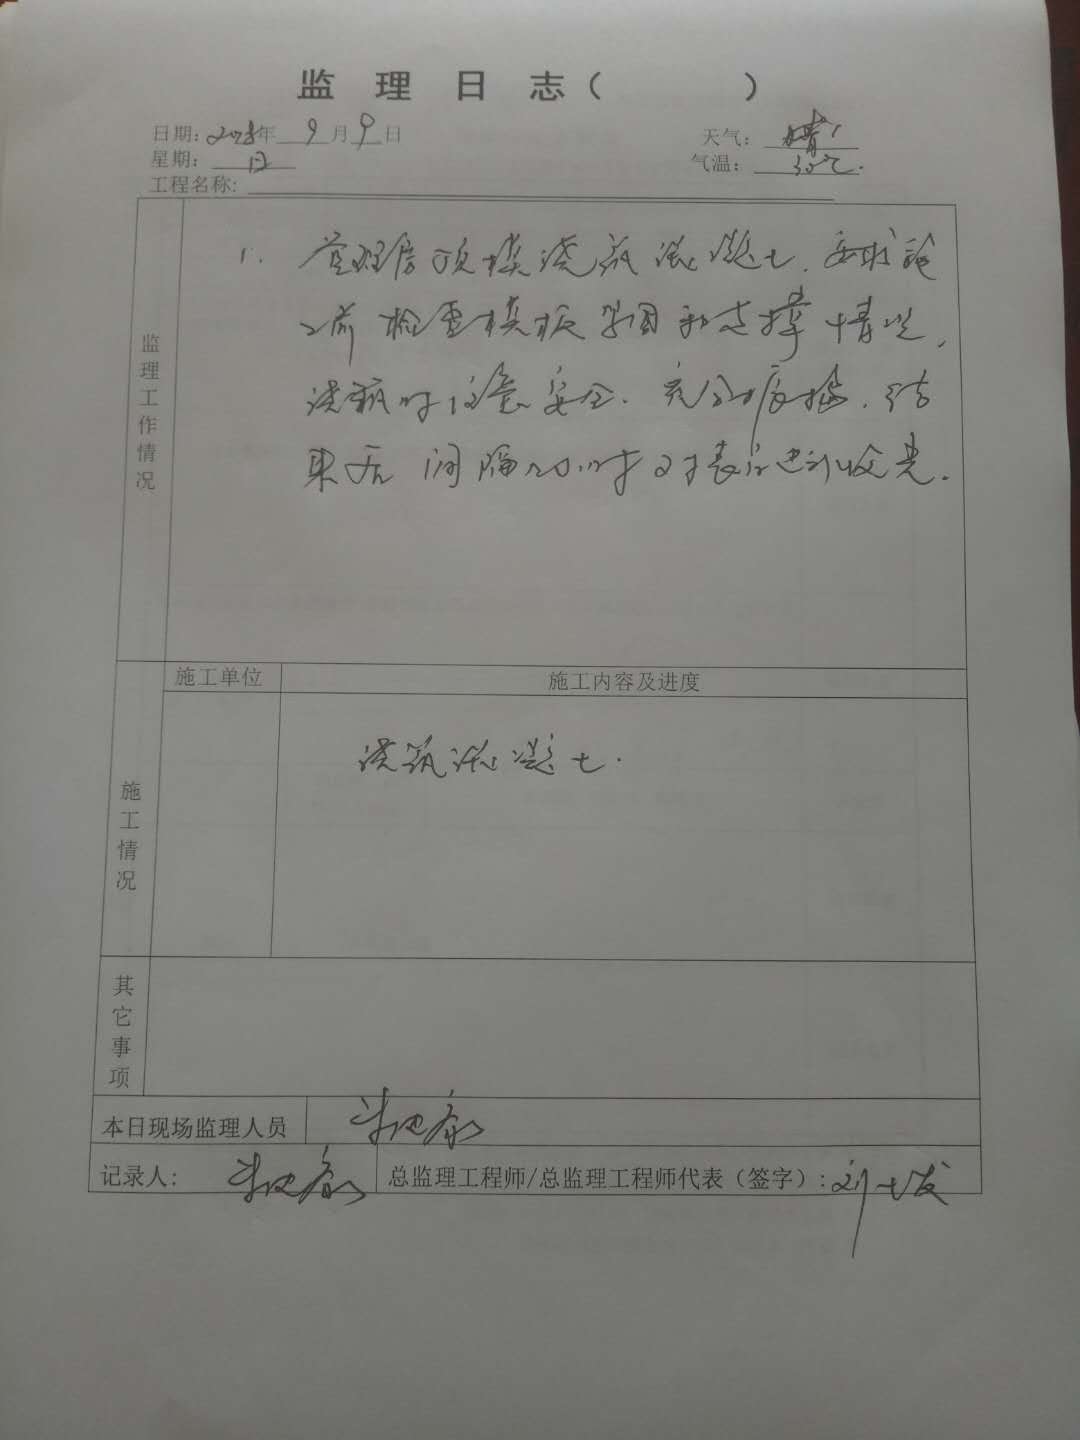 监 理 日 志 （ ）
日期：2018年 9 月 9 日
天气： 晴
星期： 日
气温： 30℃.
工程名称：
监理工作情况
1. 管理房顶模浇筑混凝土，要求施
工前检查模板牢固和支撑情况，
浇筑时注意安全，充分振捣，结
束后间隔2小时对表面进行收光.
施工单位
施工内容及进度
施工情况
浇筑混凝土.
其它事项
本日现场监理人员
记录人：
总监理工程师/总监理工程师代表（签字）：